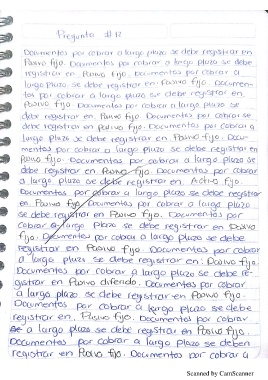 Pregunta #12
Documentos por cobrar a largo plazo se debe registrar en
Pasivo fijo. Documentos por cobrar a largo plazo se debe
registrar en: Pasivo fijo. Documentos por cobrar a
largo plazo se debe registrar en: Pasivo fijo. Documen-
tos por cobrar a largo plazo se debe registrar en.
Pasivo fijo. Documentos por cobrar a largo plazo se
debe registrar en: Pasivo fijo. Documentos por cobrar
a largo plazo se debe registrar en Pasivo fijo
Documentos por cobrar a largo plazo se debe registrar
en Pasivo fijo. Documentos por cobrar a
largo plazo se debe registrar en: Pasivo fijo. Docu-
mentos por cobrar a largo plazo se debe registrar en
Pasivo fijo. Documentos por cobrar a largo plazo se
debe registrar en Pasivo fijo. Documentos por cobrar
a largo plazo se debe registrar en. Activo fijo.
Documentos por cobrar a largo plazo se debe registrar
en. Pasivo fijo. Documentos por cobrar a largo plazo
se debe registrar en Pasivo fijo. Documentos por
cobrar a largo plazo se debe registrar en Pasivo
fijo. Documentos por cobrar a largo plazo se debe
registrar en Pasivo fijo. Documentos por cobrar
a largo plazo se debe registrar en: Pasivo fijo.
Documentos por cobrar a largo plazo se debe re-
gistrar en Pasivo diferido. Documentos por cobrar
a largo plazo se debe registrar en Pasivo fijo.
Documentos por cobrar a largo plazo se debe
registrar en. Pasivo fijo. Documentos por cobrar
a largo plazo se debe registrar en Pasivo fijo.
Documentos por cobrar a largo plazo se deben
registrar en Pasivo fijo. Documentos por cobrar a
Scanned by CamScanner